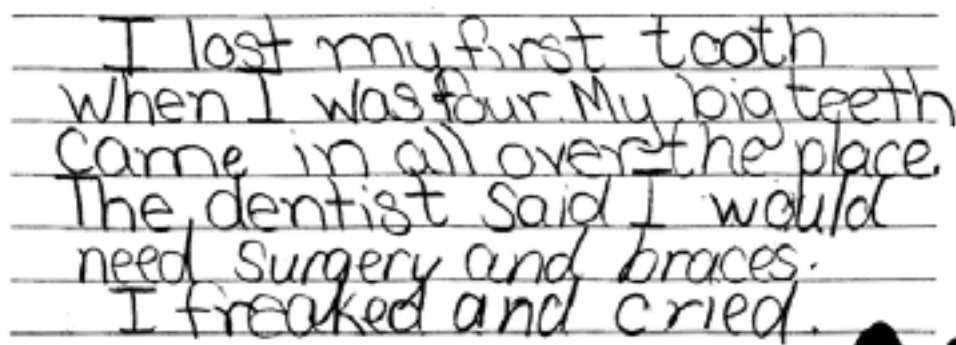 I lost my first tooth
when I was four. My big teeth
came in all over the place.
The dentist said I would
need surgery and braces.
I freaked and cried.